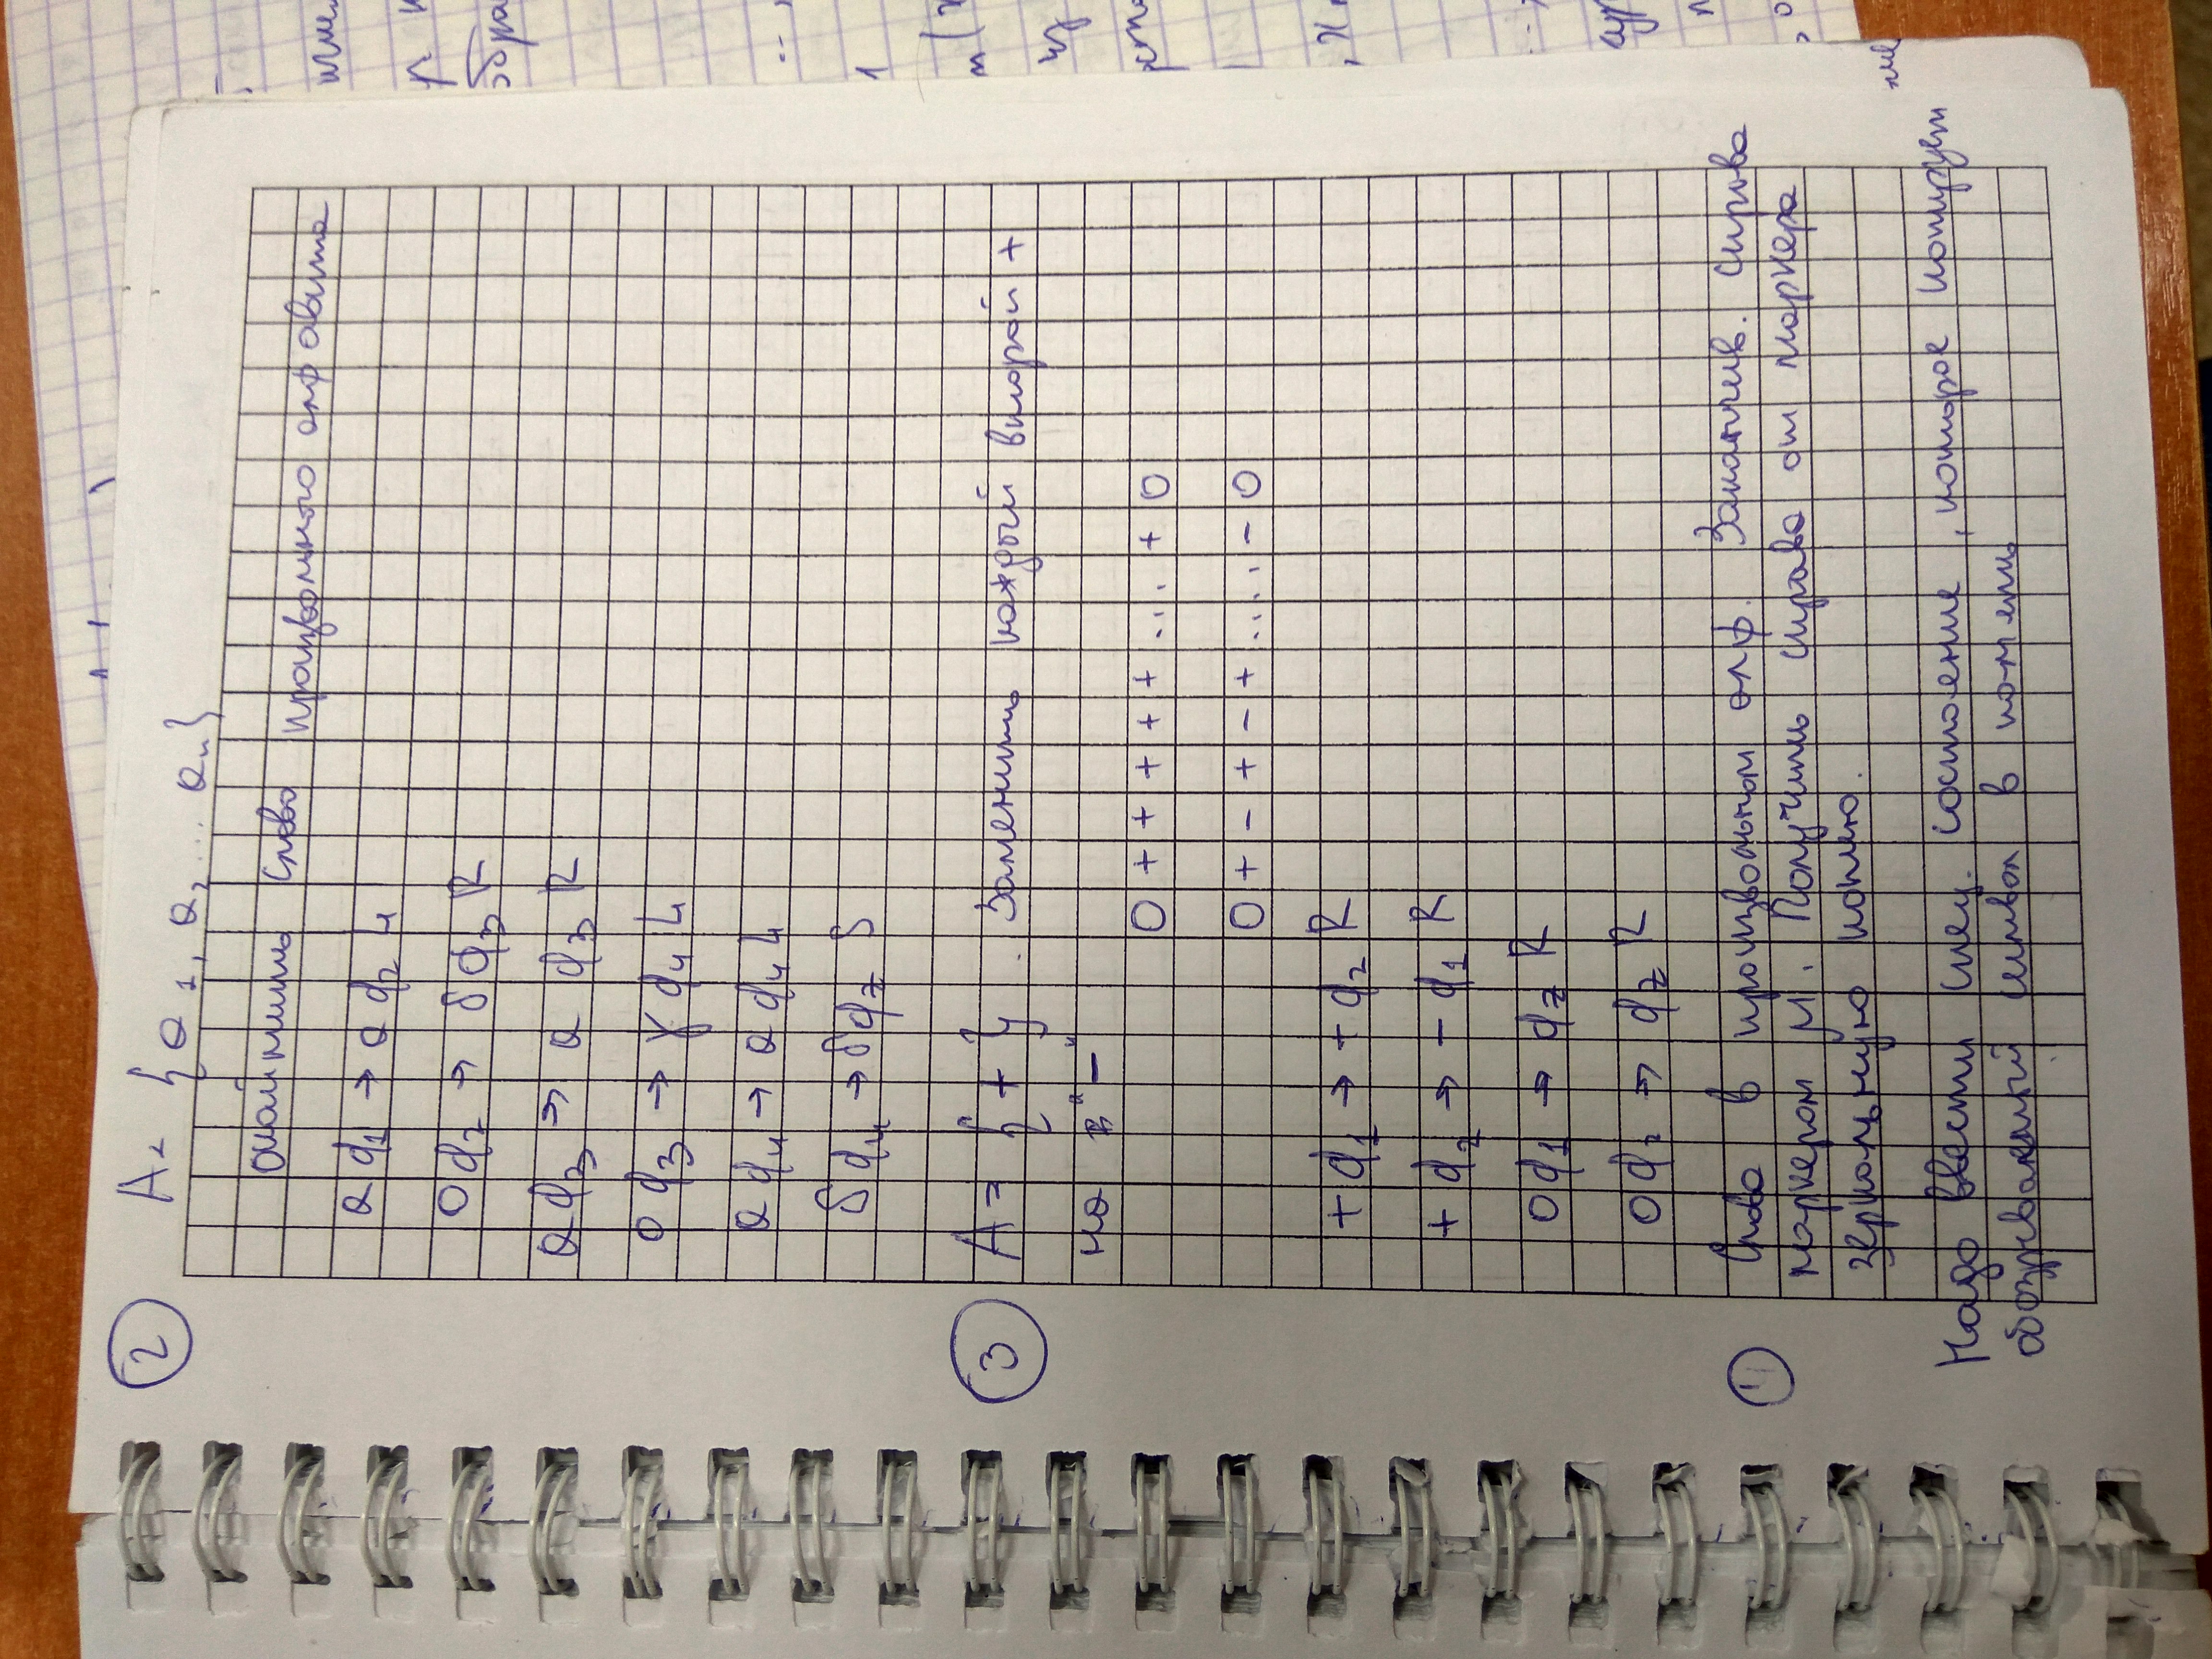 ②
A = { a 1, a 2, ... a n }
Окаймить слово произвольного алфавита
a q1 → a q2 L
0 q2 → δ q3 R
a q3 → a q3 R
0 q3 → γ q4 L
a q4 → a q4 L
δ q4 → δ qz S
③
A = { + } . Заменить каждый второй +
на "-"
0 + + + + + ... + 0
0 + - + - + ... - 0
+ q1 → + q2 R
+ q2 → - q1 R
0 q1 → qz R
0 q2 → qz R
①
Слово в произвольном алф. Заканчив. справа
маркером М. Получить справа от маркера
зеркальную копию.
Надо ввести спец. состояние, которое копирует
обозреваемый символ в